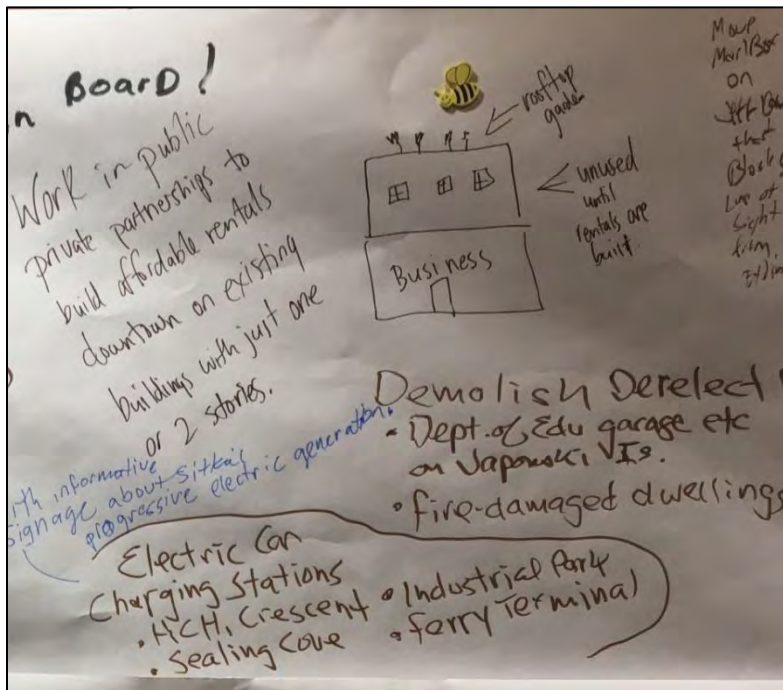 n BoarD!
Work in public
private partnerships to
build affordable rentals
downtown on existing
buildings with just one
or 2 stories.
rooftop
garden
unused
until
rentals are
built.
Business
Move
MailBox
on
that
Block
Line of
Sight
from
Demolish Derelect
• Dept. of Edu garage etc
on Japonski Is.
• fire-damaged dwellings
ith informative
signage about Sitka's
progressive electric generation.
Electric Car
Charging Stations
• HCH, Crescent
• Sealing Cove
• Industrial Park
• Ferry Terminal